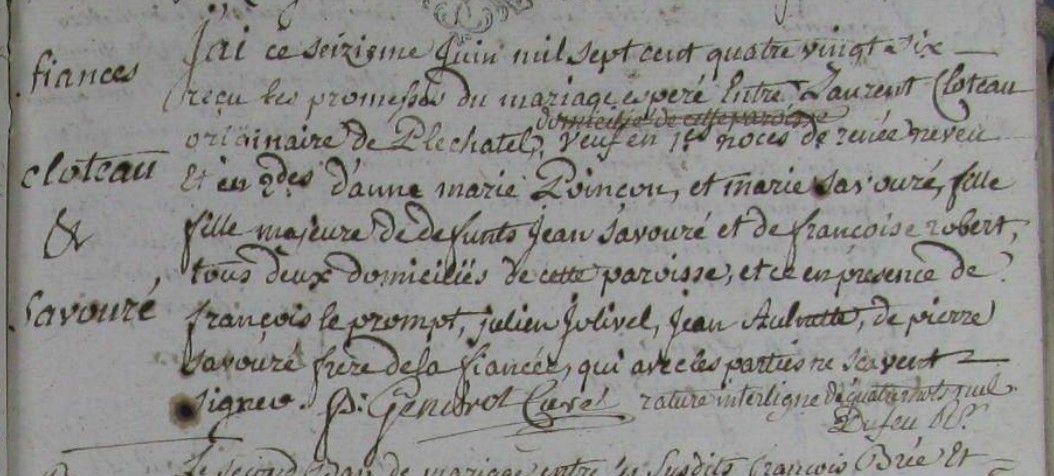 fiances
cloteau
&
Savouré
J'ai ce seizieme Juin mil sept cent quatre vingt six
reçu les promesses du mariage esperé Entre Laurent Cloteau
domicilié de cette paroisse
originaire de Plechatel, veuf en 1res noces de renée neveu
Et en 2des d'anne marie Poinçon, et marie Savouré, fille
fille majeure de defunts Jean Savouré et de françoise robert,
tous deux domiciliés de cette paroisse, et ce en presence de
françois le prompt, julien Jolivel, Jean, de pierre
Savouré frere de la fiancée, qui avec les parties ne scavent
signer. P: Gendrot Curé rature interligne de quatre mots nul
Le second Ban de mariage entre les susdits françois Brié Et